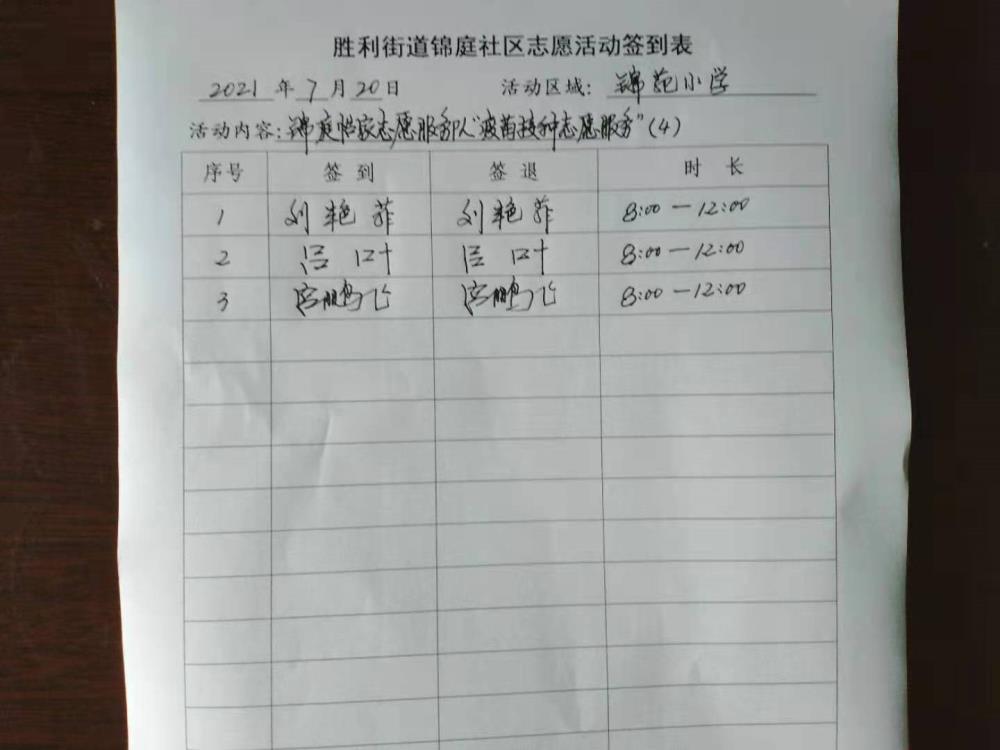 胜利街道锦庭社区志愿活动签到表
2021年7月20日 活动区域：锦苑小学
活动内容：锦庭怡家志愿服务队"疫苗接种志愿服务"（4）
序号 签到 签退 时长
1 刘艳菲 刘艳菲 8:00－12:00
2 吕叶 吕叶 8:00－12:00
3 宫鹏飞 宫鹏飞 8:00－12:00